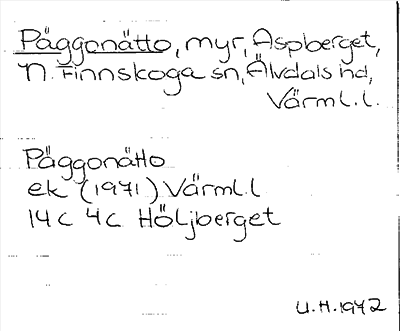 Päggonätto, myr, Äspberget,
N. Finnskoga sn, Älvdals hd,
Värml. l.
Päggonätto
ek (1971) Värml. l
14c 4c Höljberget
U.H. 1972